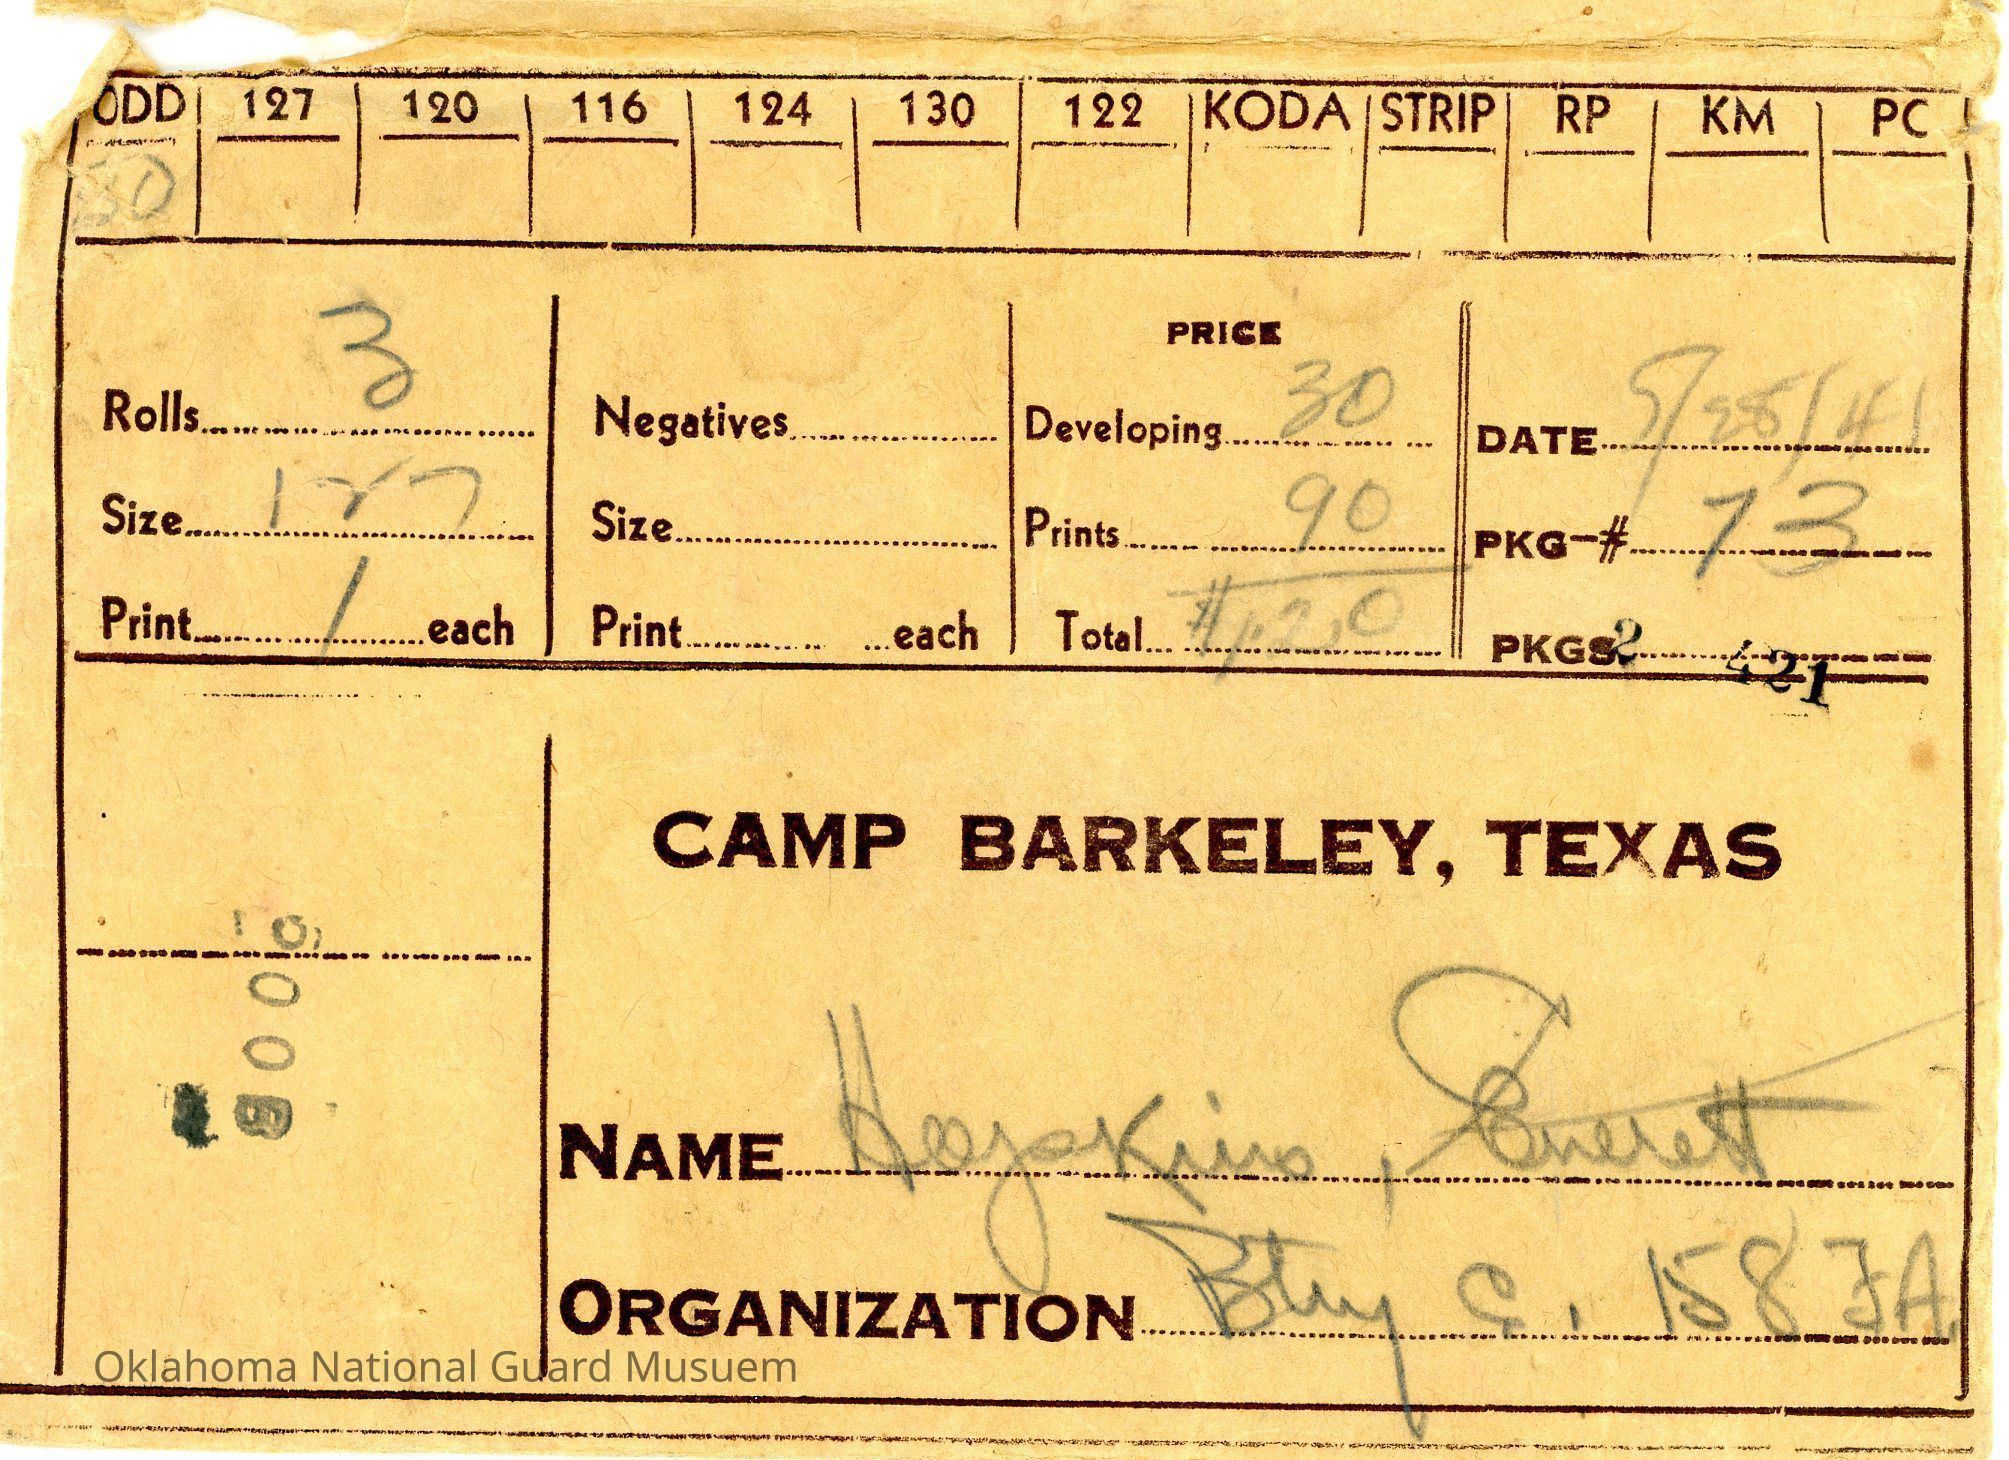 ODD 127 120 116 124 130 122 KODA STRIP RP KM PC
30
PRICE
Rolls 3 Negatives Developing 30 DATE 9/28/41
Size 127 Size Prints 90 PKG-# 73
Print 1 each Print each Total $1.20 PKGS 2 421
CAMP BARKELEY, TEXAS
NAME , Everett
ORGANIZATION Btry C. 158 FA.
Oklahoma National Guard Musuem